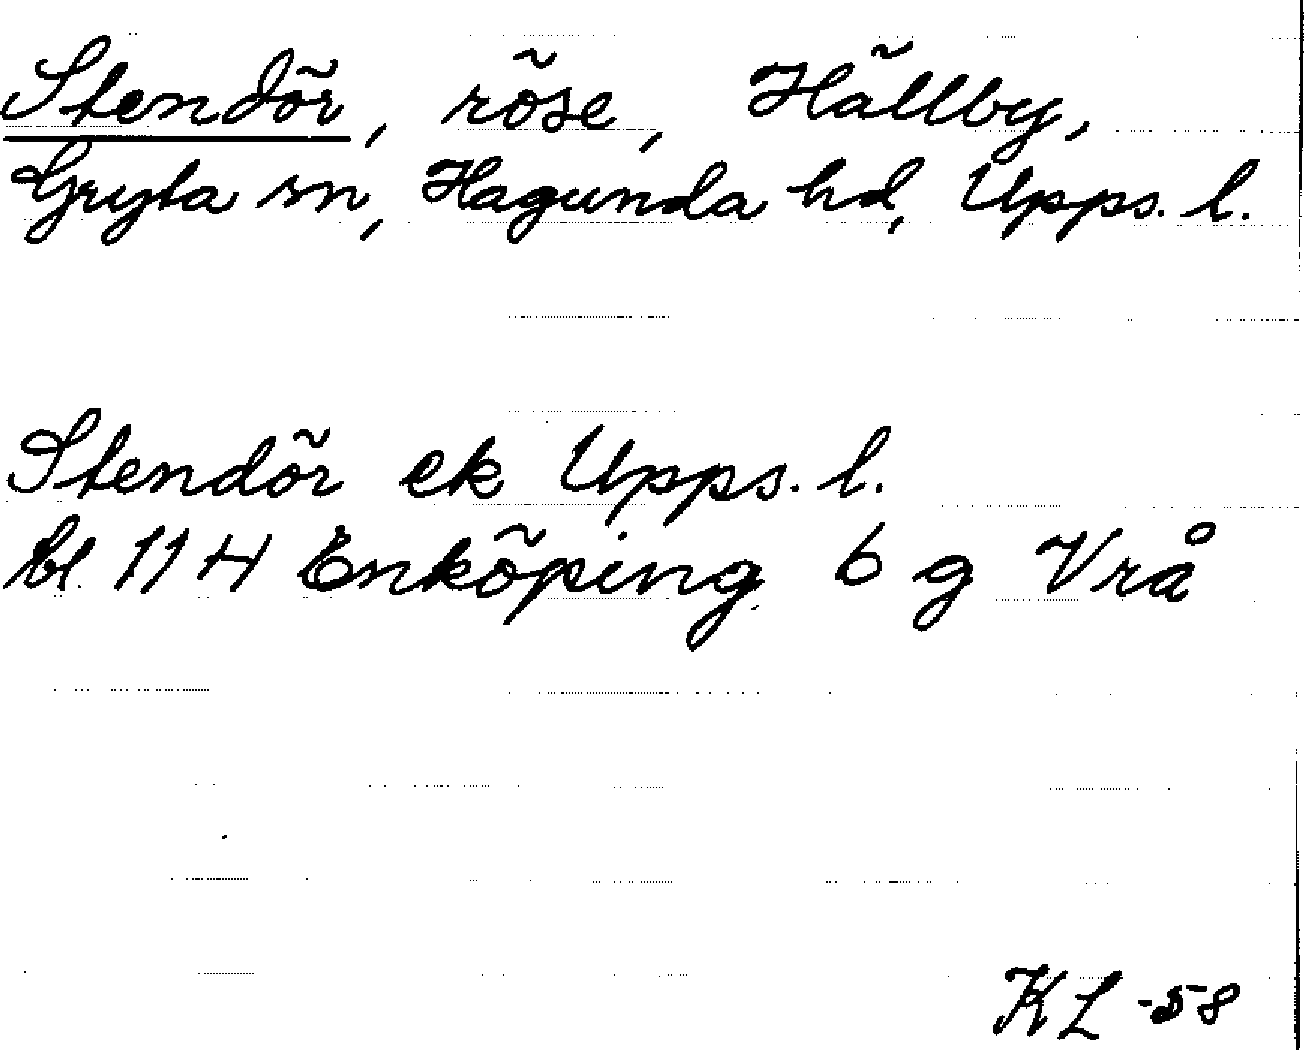 Stendör, röse, Hällby,
Gryta sn, Hagunda hd, Upps. l.
Stendör ek Upps. l.
bl. 11 H Enköping 6 g Vrå
KL -58